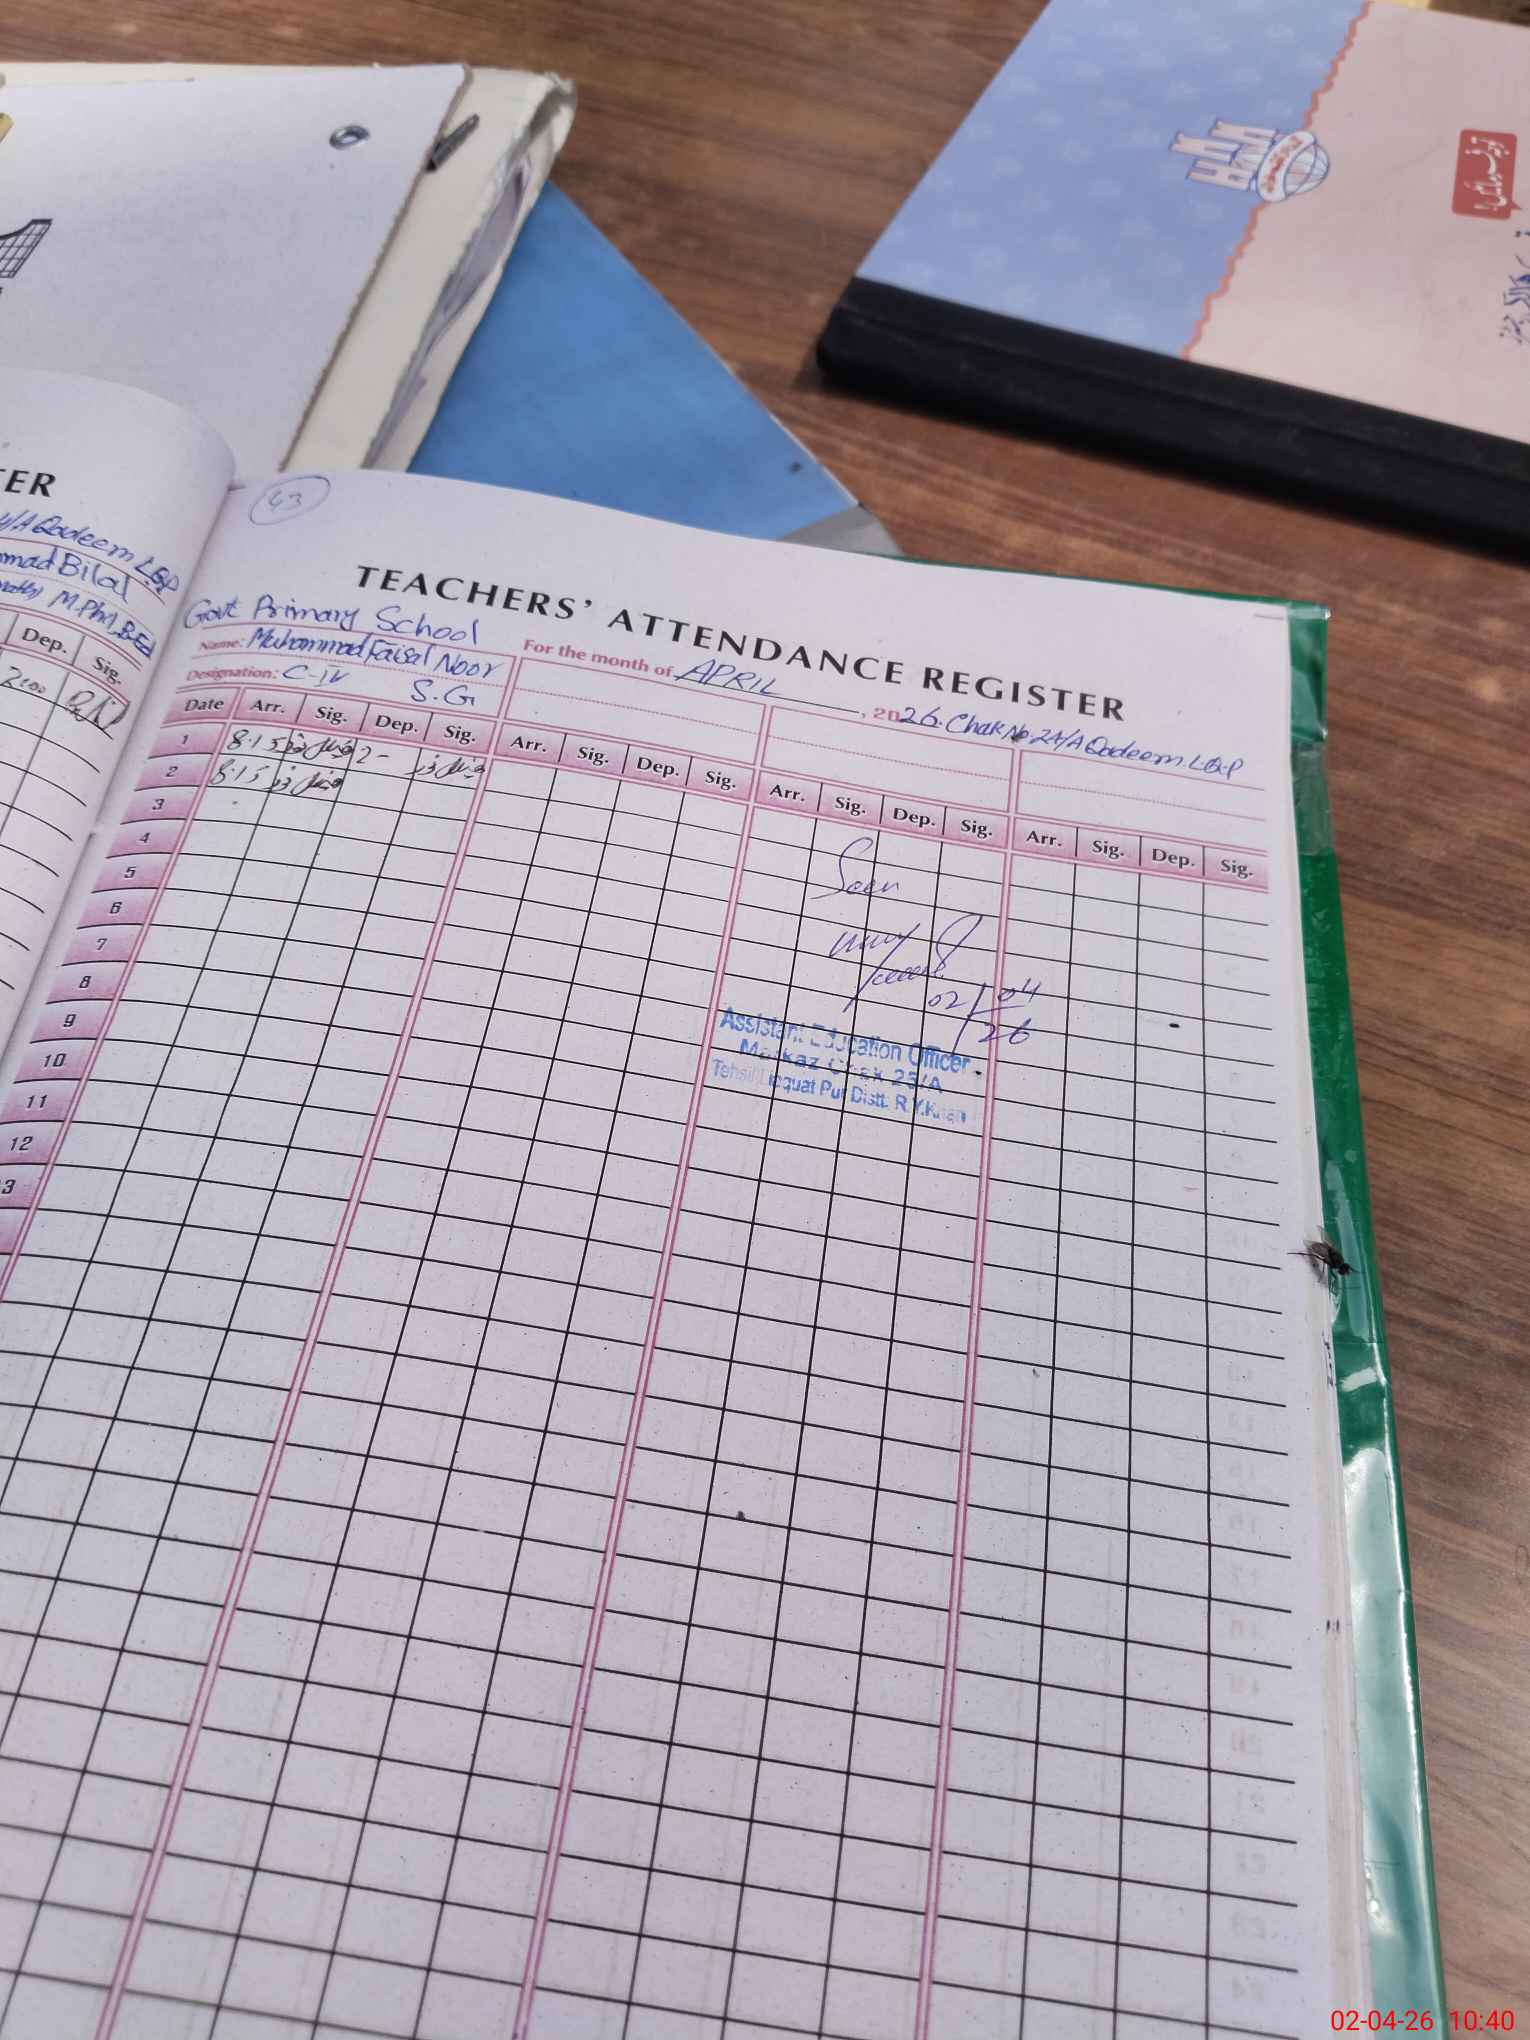 TER
4/A Qadeem LQP
mmad Bilal
M.Phil, B.Ed
Dep. Sig.
2:00
43
TEACHERS' ATTENDANCE REGISTER
Govt Primary School
For the month of APRIL, 2026. Chak No 24/A Qadeem LQP
Name: Muhammad Faisal Noor
Designation: C-IV S.G
Date Arr. Sig. Dep. Sig. Arr. Sig. Dep. Sig. Arr. Sig. Dep. Sig. Arr. Sig. Dep. Sig.
1 8:15 فیصل نور 2- فیصل نور
2 8:15 فیصل نور
3
4
5
6
7
8
9
10
11
12
3
Seen
02/04/26
Assistant Education Officer
Markaz Chak 25/A
Tehsil Liaquat Pur Distt. R.Y.Khan
02-04-26 10:40